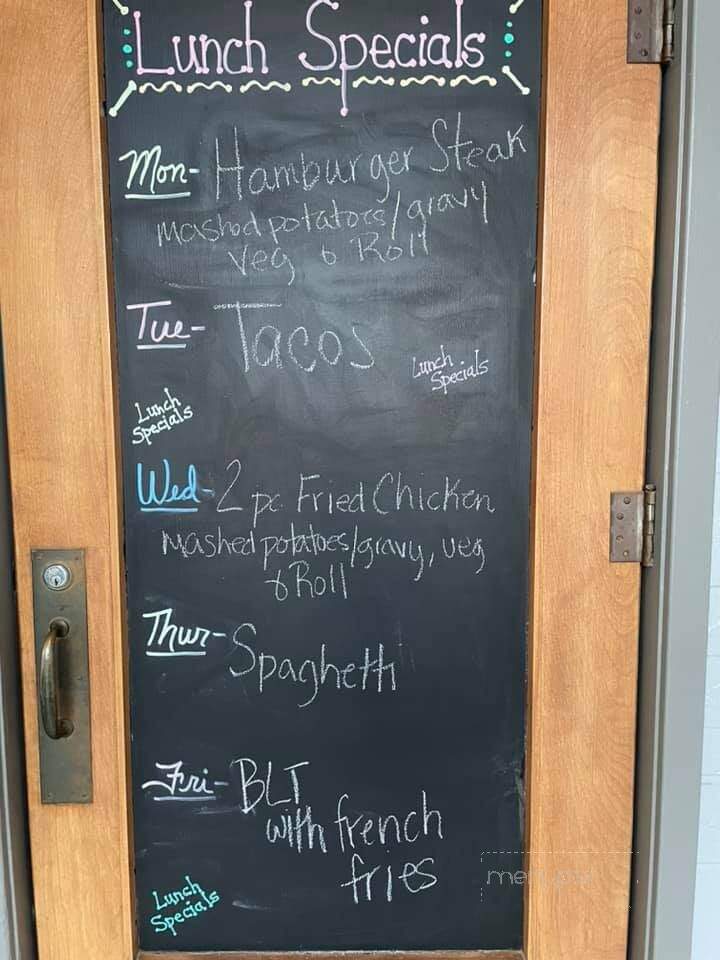 Lunch Specials
Mon- Hamburger Steak
mashed potatoes/gravy
veg & Roll
Tue- Tacos
Lunch
Specials
Lunch
Specials
Wed- 2 pc Fried Chicken
mashed potatoes/gravy, veg
& Roll
Thur- Spaghetti
Fri- BLT
with french
fries
Lunch
Specials